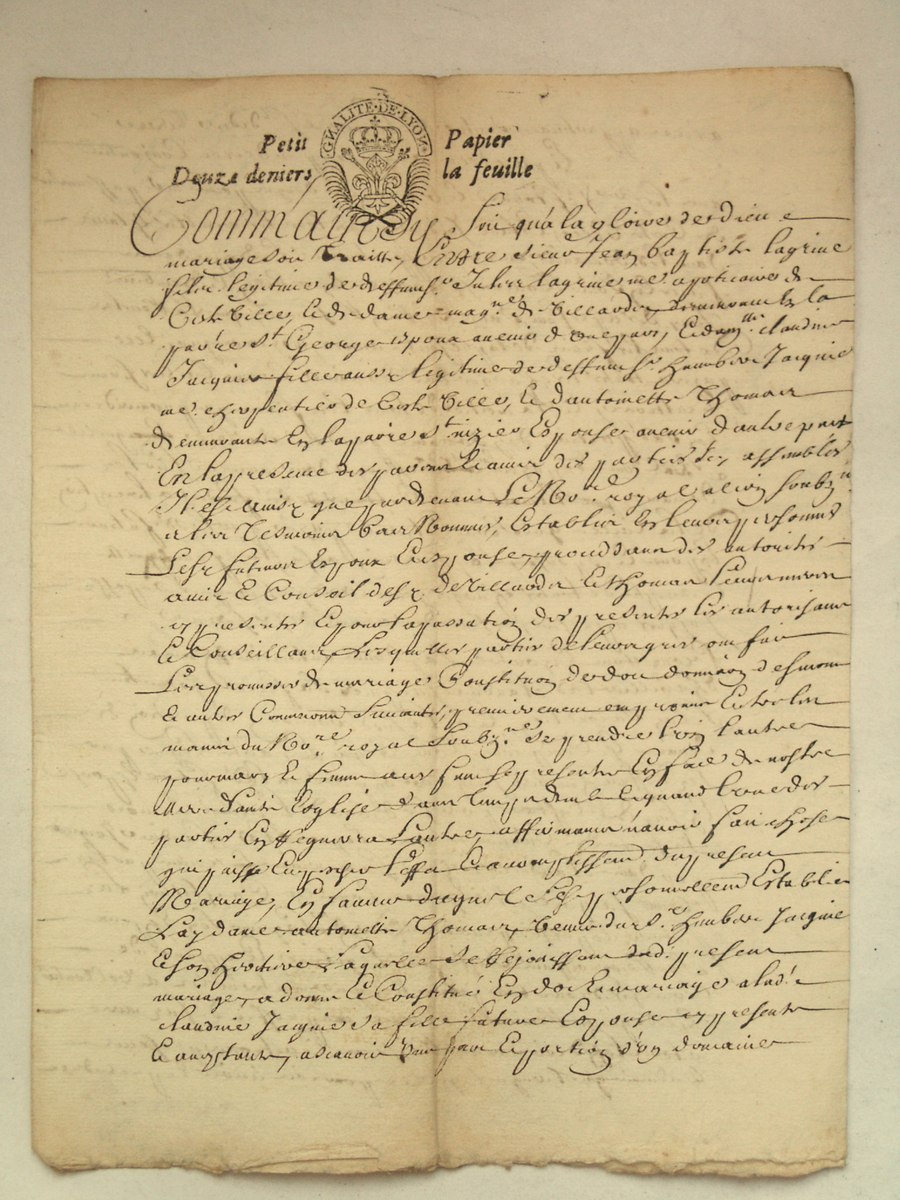 GNALITE·DE·LYON
Petit Papier
Douze deniers la feuille
Comm'ainsy Soit qu'a la gloire de dieu
mariage soit traitte, Entre sieur Jean baptiste lagrive
fils legitime de deffunct sr Julien lagrive me apoticaire de
Ceste Ville, Et de dame de Villaudin demeurante la
paroisse st George Espoux avenir d'une part, Et dam.lle claudine
Jacquier fille aussy legitime de deffunct sr humbert Jacquier
me charpentier de Ceste Ville, Et d'antoinette Thomas
demeurante En la paroisse st nizier Espouse avenir d'autre part
En la presence des parens Et amis des parties Icy assemblés
Il est ainsy que pardevant Le No.re royal a lion soubz.ne
et les Tesmoins bas Nommés, Establis En leurs personnes
Lesd. futeurs Espoux Et Espouse, procedant des autorités
avis Et Conseil desd. de Villaudin Et thomas leurs meres
cy presentes Et pour la passation des presentes les autorisant
Et Conseillant, Lesquelles parties de leurs gres ont fait
Les promesses de mariage Constitution de dot donnation
Et autres Conventions Suivantes, premierement ont promis Et
main du No.re royal soubz.né se prendre L'un l'autre
pour mary Et femme aux fins se presenter En face de nostre
mere Sainte Eglise Et quand l'une des
parties En requerra L'autre affirmants n'avoir fait chose
qui puisse Empescher l'effet Et accomplissement du present
Mariage, En faveur duquel S'est personnellement Establie
Lad. dame antoinette Thomas, Veuve dud. sr humbert Jacquier
Et son heritiere, laquelle se rejouissant dud. present
mariage, a donné Et Constitué En dot Et mariage a lad.
claudine Jacquier sa fille future Espouse cy presente
Et acceptante, ascavoir Une part Et portion d'un domaine